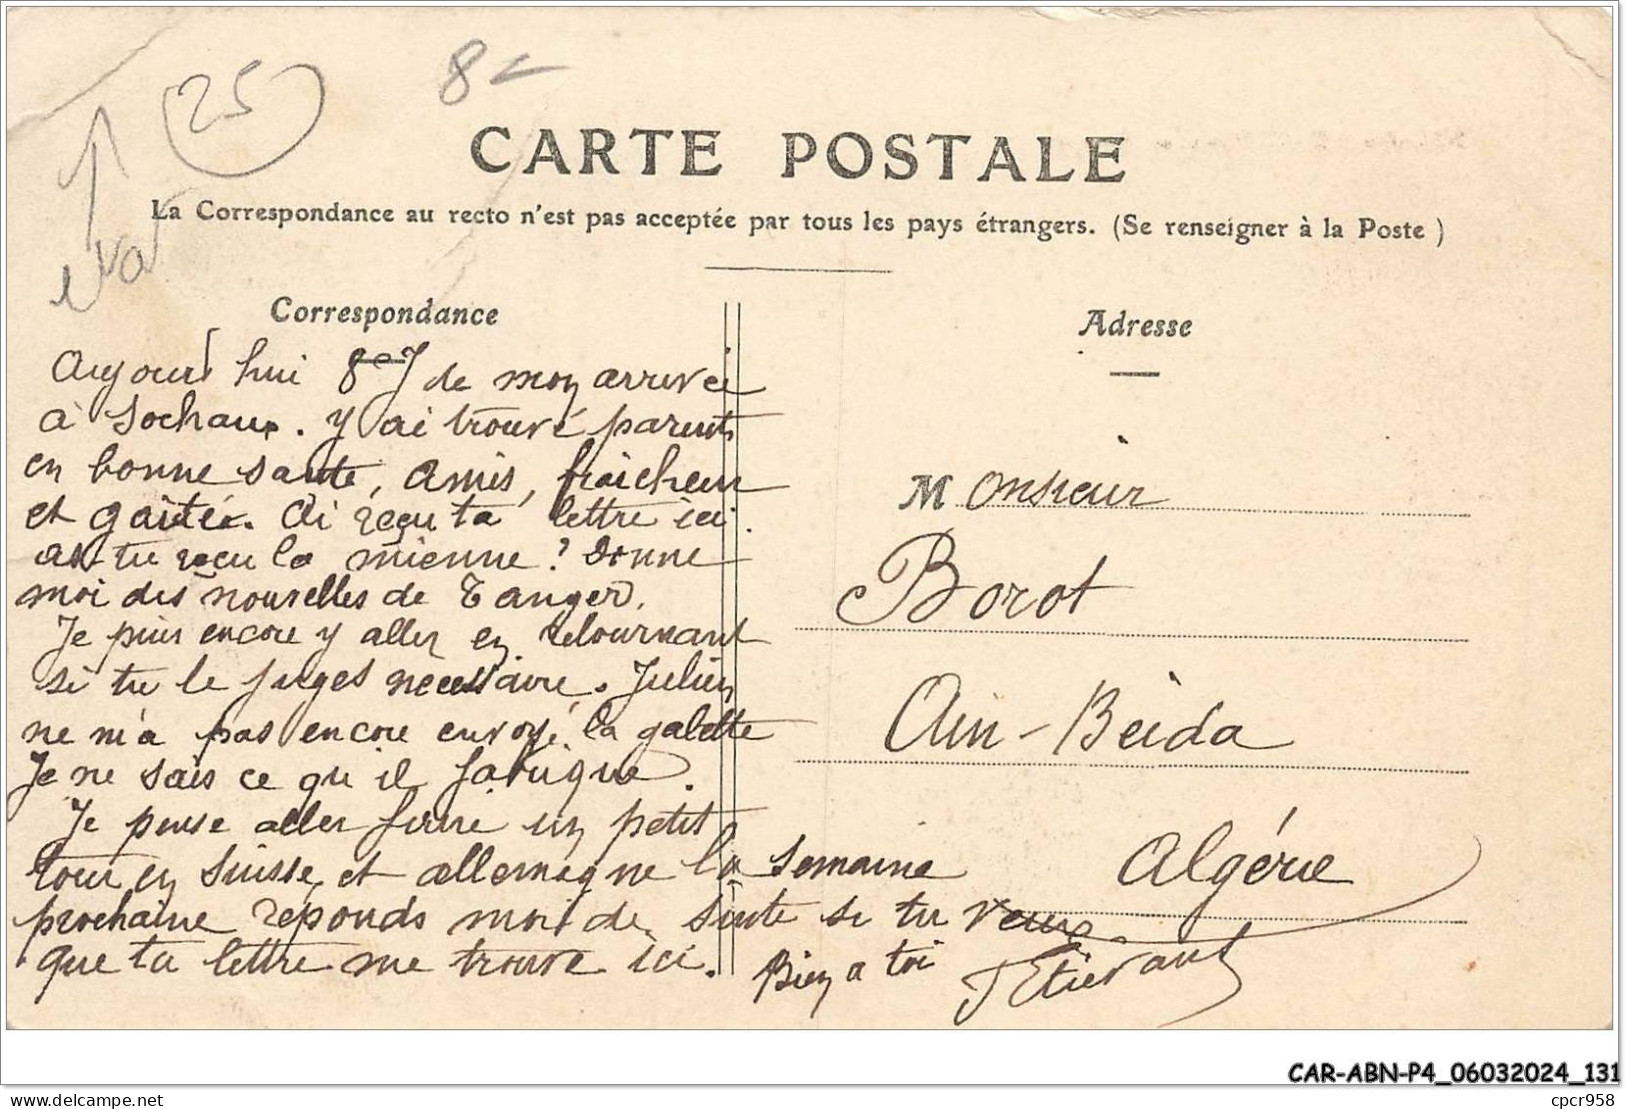 25
8
CARTE POSTALE
La Correspondance au recto n'est pas acceptée par tous les pays étrangers. (Se renseigner à la Poste )
Correspondance
Adresse
Aujourd'hui 8e J de mon arrivée
à Sochaux. J'y ai trouvé parents
en bonne santé, amis, fraicheur
et gaité. Ai reçu ta lettre ici.
as tu reçu la mienne ? Donne
moi des nouvelles de Tanger.
Je puis encore y aller en retournant
si tu le juges necessaire. Julien
ne m'a pas encore envoyé la galette
Je ne sais ce qu'il fabrique.
Je pense aller faire un petit
tour en Suisse et allemagne la semaine
prochaine réponds moi de suite si tu veux
que ta lettre me trouve ici. Bien a toi
J Etievant
Monsieur
Borot
Ain-Beida
Algérie
CAR-ABN-P4_06032024_131
www.delcampe.net
cpcr958